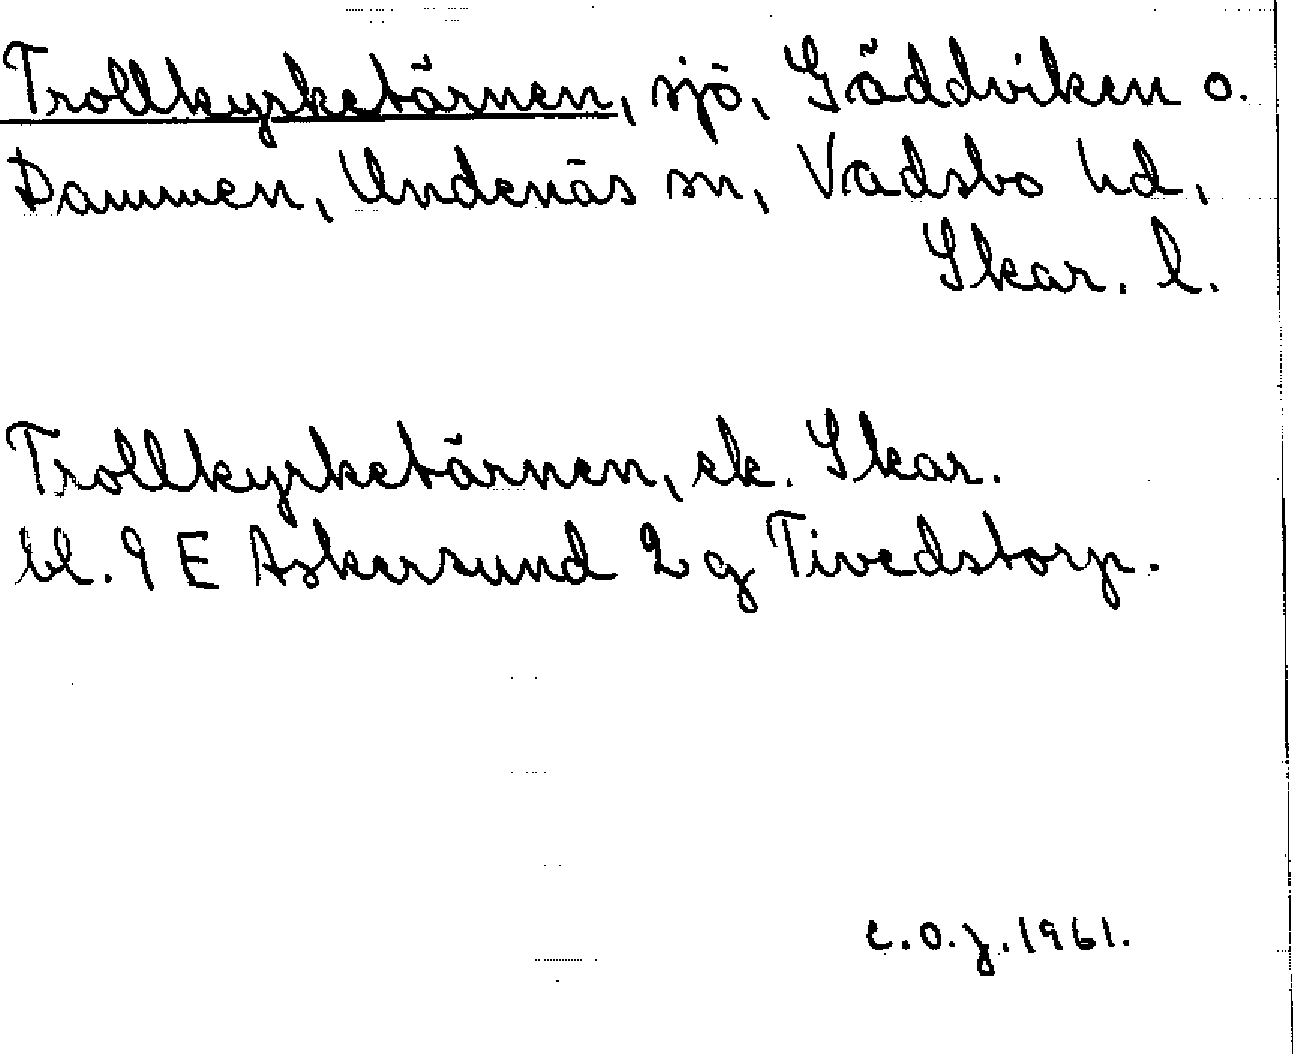 Trollkyrketärnen, sjö, Gäddviken o.
Dammen, Undenäs sn, Vadsbo hd,
Skar. l.
Trollkyrketärnen, ek. Skar.
bl. 9 E Askersund 2 g Tivedstorp.
c.o.j. 1961.